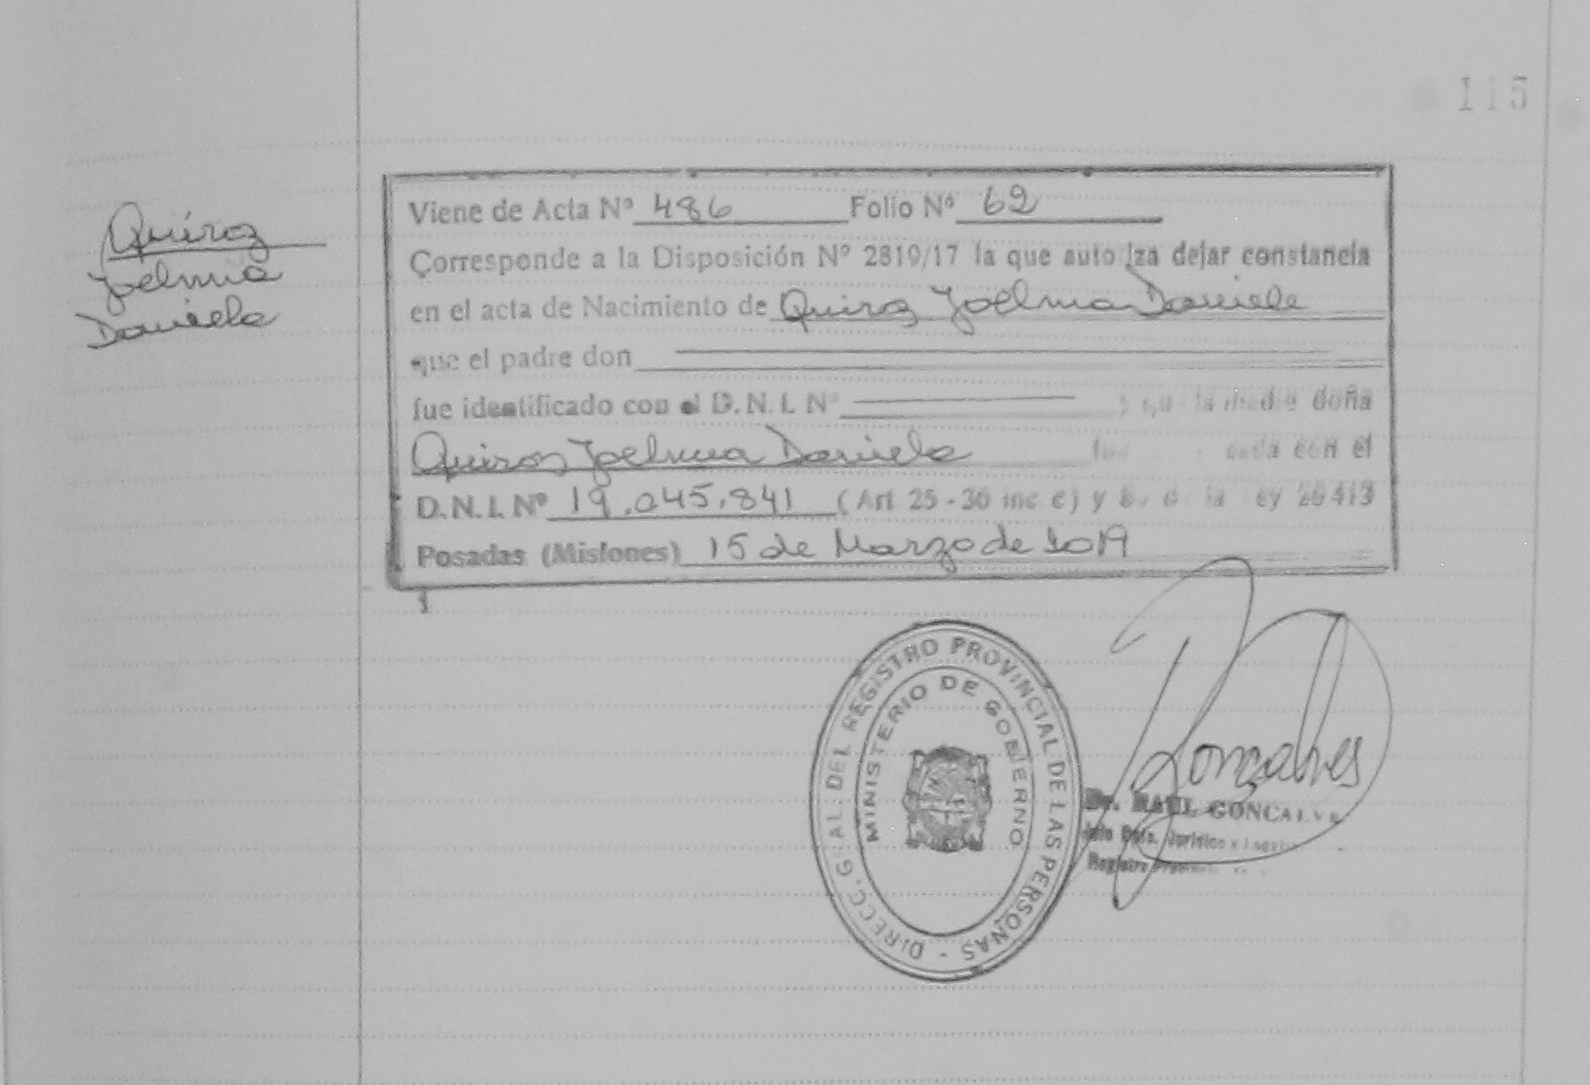 115
Quiroz
Joelma
Daniela
Viene de Acta Nº 486 Folio Nº 62
Corresponde a la Disposición Nº 2819/17 la que auto iza dejar constancia
en el acta de Nacimiento de Quiroz Joelma Daniela
que el padre don
fue identificado con el D.N.I. Nº y que la madre doña
Quiroz Joelma Daniela con el
D.N.I. Nº 19.045.841 (Art. 25 - 36 inc c) y la ley 26413
Posadas (Misiones) 15 de Marzo de 2019
DIRECC. GRAL. DEL REGISTRO PROVINCIAL DE LAS PERSONAS -
MINISTERIO DE GOBIERNO
Gonçalves
Dr. RAUL GONCALVES
Jefe Dpto. Jurídico y
Registro